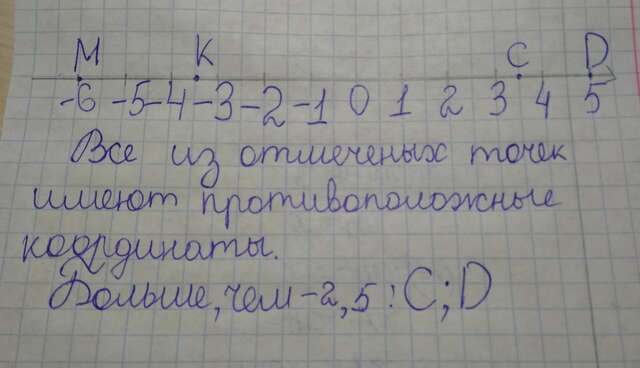 M K C D
-6 -5 -4 -3 -2 -1 0 1 2 3 4 5
Все из отмеченых точек
имеют противоположные
координаты.
Больше, чем -2,5 : C; D